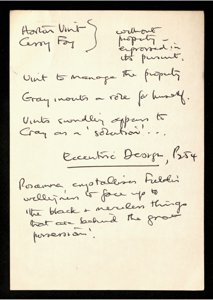 Horton Vint } without
Cissy Foy } property
expressed in
its pursuit.
Vint to manage the property
Gray wants a role for himself.
Vint's swindling appears to
Gray as a 'solution'....
Eccentric Design, P254
Rosanna crystallises Fielder's
willingness to face up to
'the black & merciless things
that are behind the great
possession'.